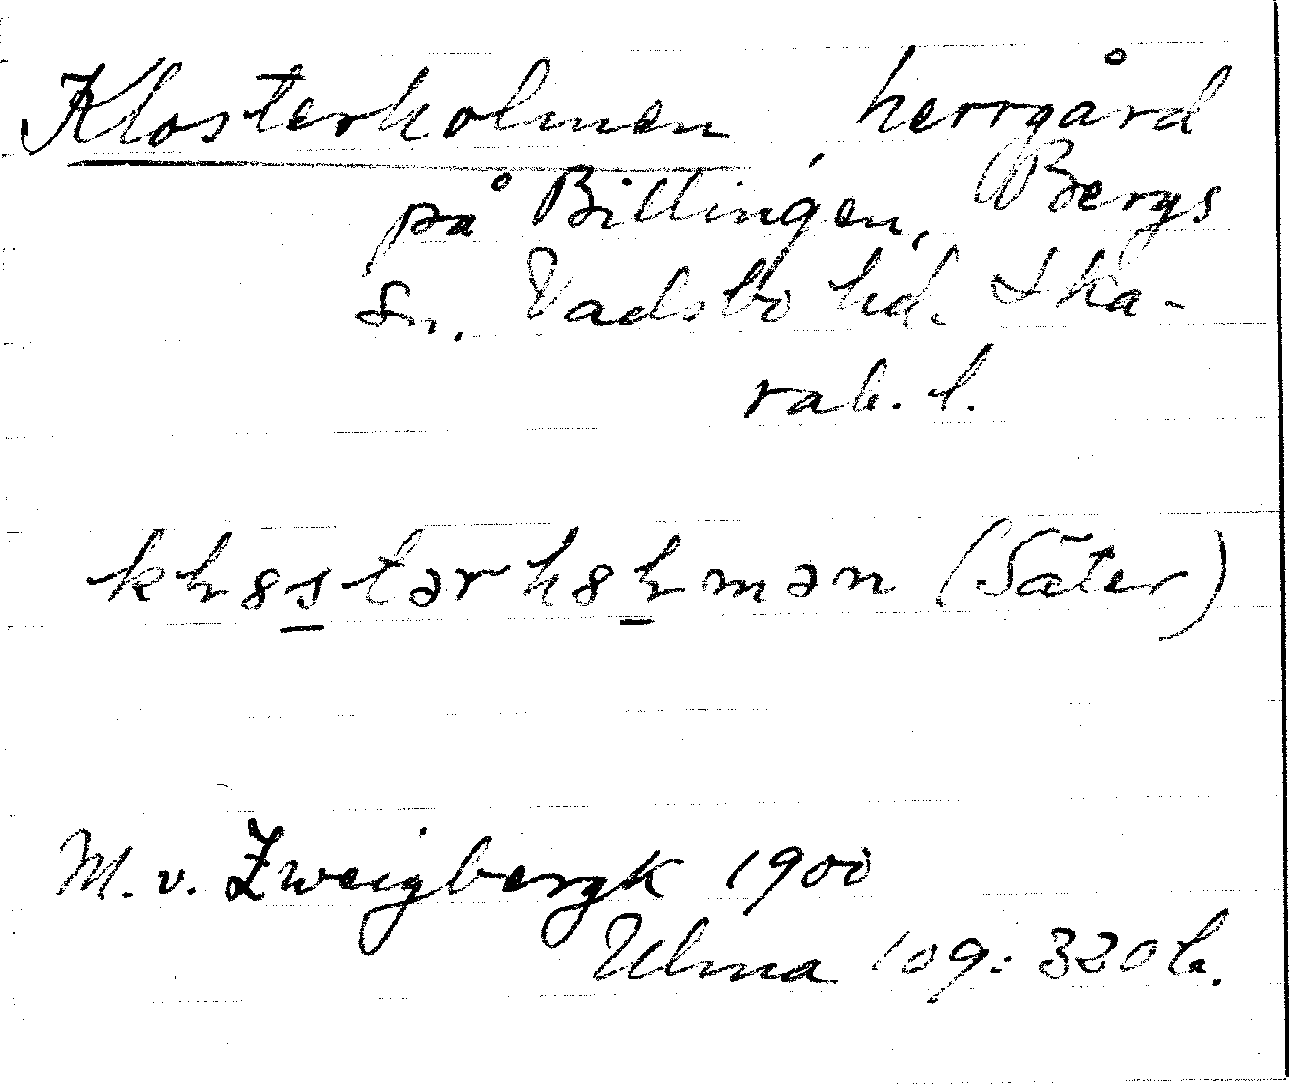 Klosterholmen herrgård
på Billingen, Bergs
sn. Vadsbo hd. Ska-
rab. l.
(Säter)
M. v. Zweigbergk 1900
Ulma 109: 320 b.